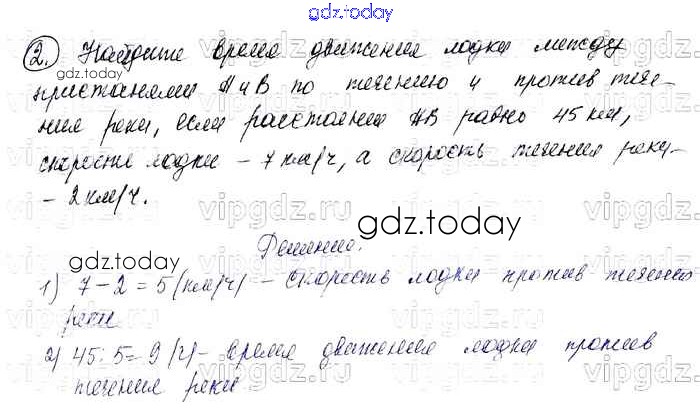 gdz.today
2. Найдите время движения лодки между
gdz.today
пристанями А и В по течению и против тече-
ния реки, если расстояние АВ равно 45 км,
скорость лодки - 7 км/ч, а скорость течения реки-
- 2 км/ч.
gdz.today
Решение.
gdz.today
1) 7-2=5 (км/ч) - скорость лодки против течения
реки
2) 45:5=9 (ч)- время движения лодки против
течения реки
gdz.today